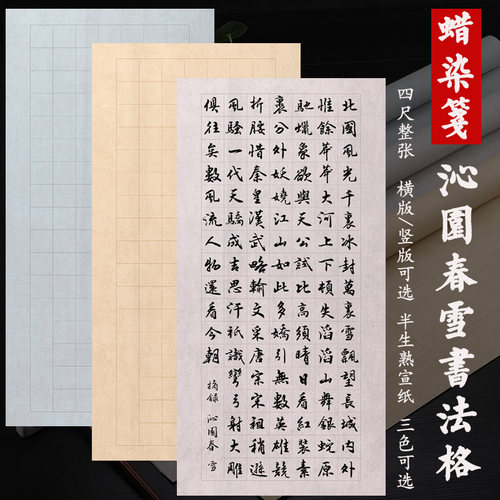 蜡染笺
沁園春雪書法格
四尺整张 横版/竖版可选 半生熟宣纸 三色可选
北國風光千裏冰封萬裏雪飄望長城內外
惟餘莽莽大河上下頓失滔滔山舞銀蛇原
馳蠟象欲與天公試比高須晴日看紅裝素
裹分外妖嬈江山如此多嬌引無數英雄競
折腰惜秦皇漢武略輸文采唐宗宋祖稍遜
風騷一代天驕成吉思汗衹識彎弓射大雕
俱往矣數風流人物還看今朝
摘錄 沁園春雪